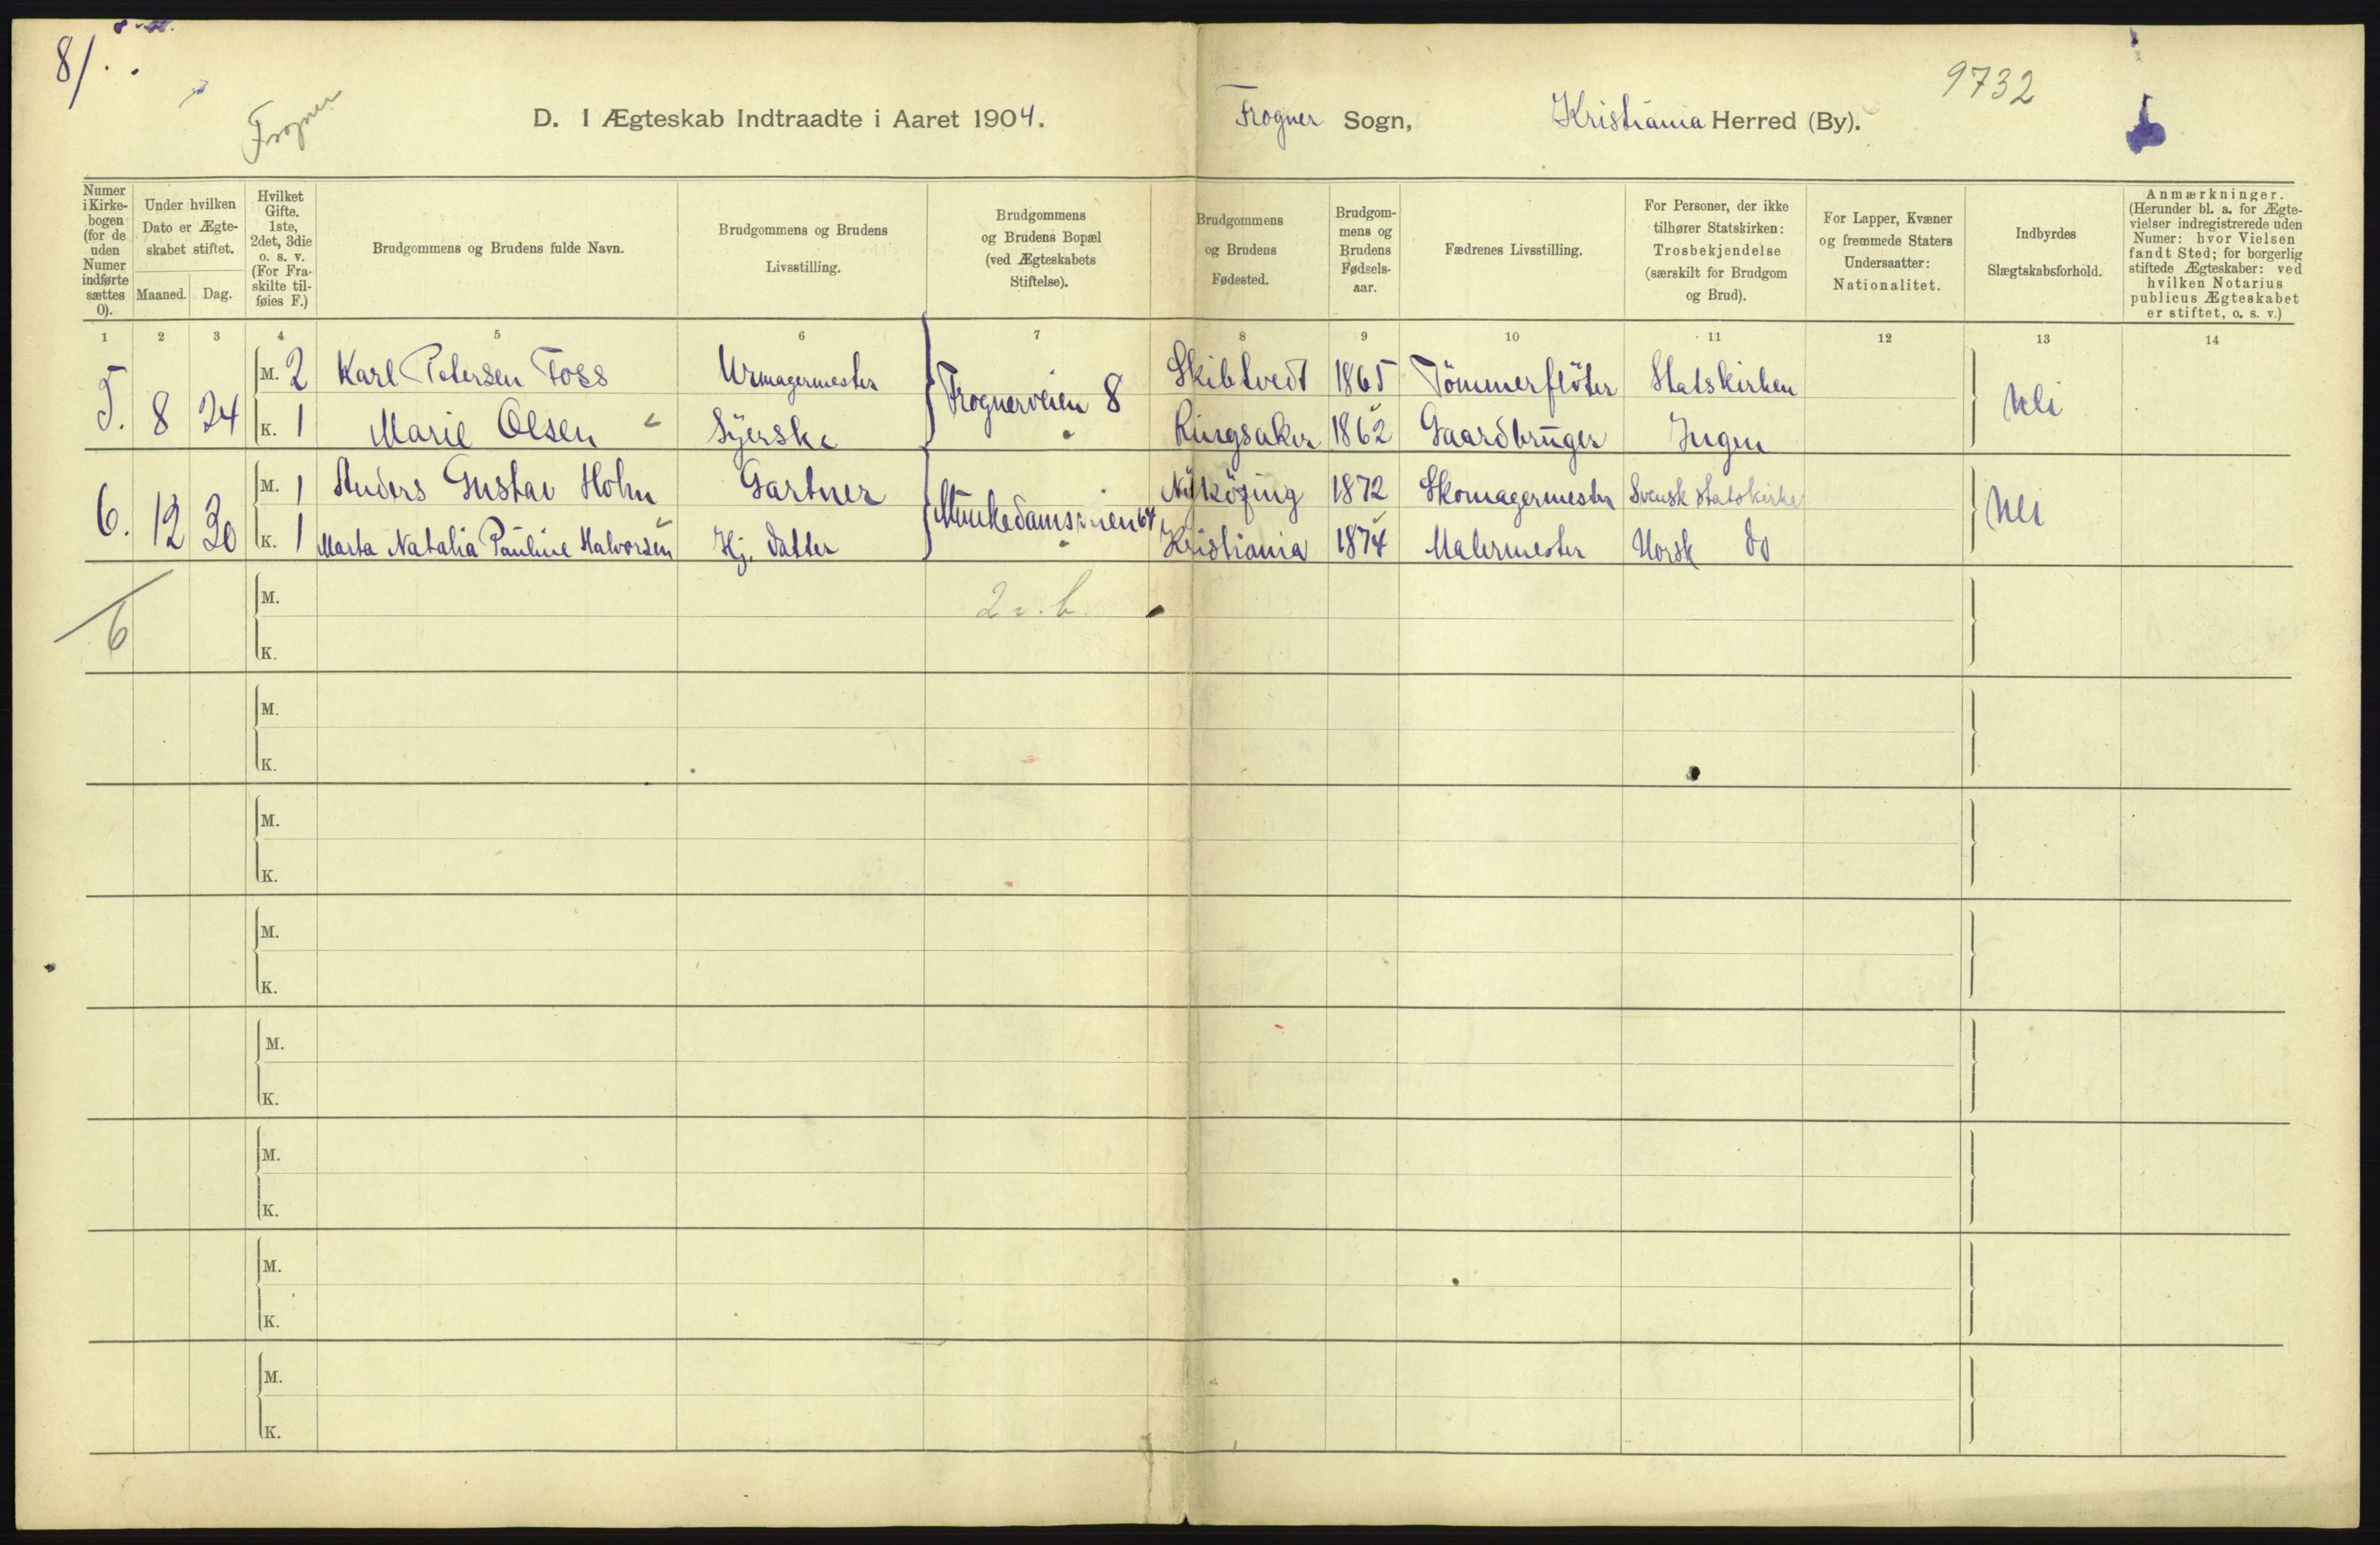 81
Frogner
D. I Ægteskab Indtraadte i Aaret 1904.
Frogner Sogn,
Kristiania Herred (By).
9732
Numer i Kirke-bogen (for de uden Numer indførte sættes 0).
Under hvilken Dato er Ægte-skabet stiftet.
Maaned. Dag.
Hvilket Gifte. 1ste, 2det, 3die o. s. v. (For Fra-skilte til-føies F.)
Brudgommens og Brudens fulde Navn.
Brudgommens og Brudens Livsstilling.
Brudgommens og Brudens Bopæl (ved Ægteskabets Stiftelse).
Brudgommens og Brudens Fødested.
Brudgom-mens og Brudens Fødsels-aar.
Fædrenes Livsstilling.
For Personer, der ikke tilhører Statskirken: Trosbekjendelse (særskilt for Brudgom og Brud).
For Lapper, Kvæner og fremmede Staters Undersaatter: Nationalitet.
Indbyrdes Slægtskabsforhold.
Anmærkninger. (Herunder bl. a. for Ægte-vielser indregistrerede uden Numer: hvor Vielsen fandt Sted; for borgerlig stiftede Ægteskaber: ved hvilken Notarius publicus Ægteskabet er stiftet, o. s. v.)
1 2 3 4 5 6 7 8 9 10 11 12 13 14
5. 8 24
M. 2 Karl Petersen Foss Urmagermester Frognerveien 8 Skibtvedt 1865 Tömmerflöter Statskirken Nei
K. 1 Marie Olsen Syerske Ringsaker 1862 Gaardbruger Ingen
6. 12 30
M. 1 Anders Gustav Holm Gartner Munkedamsveien 64 Nyköping 1872 Skomagermester Svensk Statskirke Nei
K. 1 Marta Natalia Pauline Halvorsen Hj. datter Kristiania 1874 Malermester Norsk do
6
M. 2 v. b.
K.
M.
K.
M.
K.
M.
K.
M.
K.
M.
K.
M.
K.
M.
K.